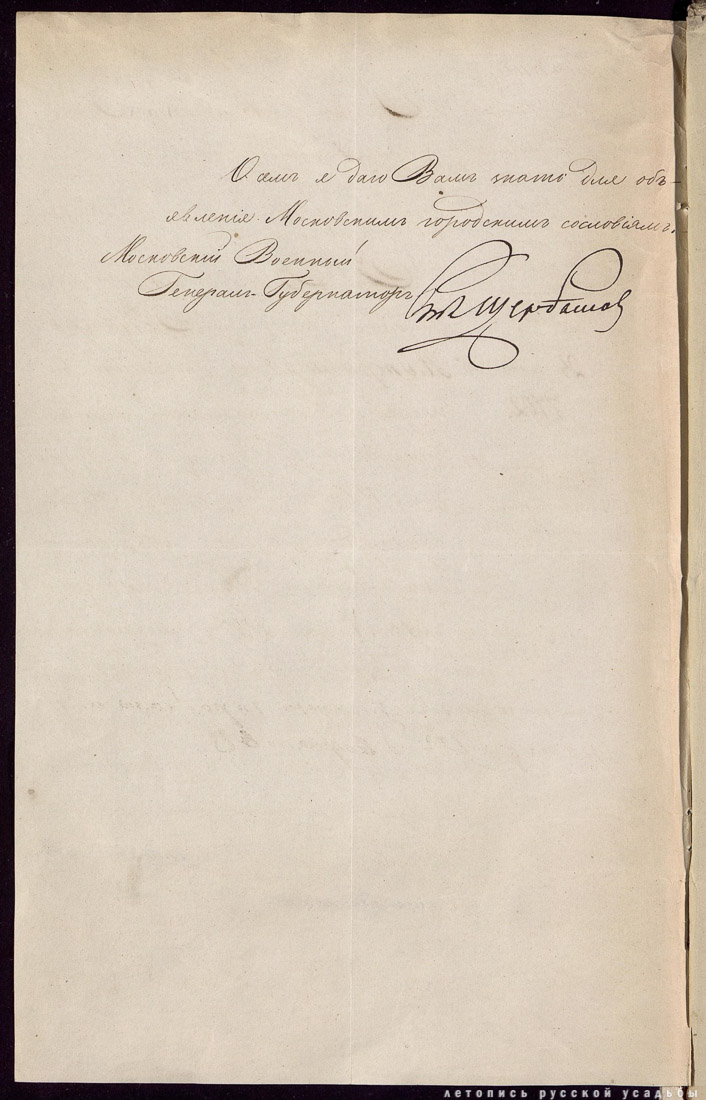 О семъ я даю Вамъ знать для объ-
явленія Московскимъ городскимъ сословіямъ.
Московскій Военный
Генералъ-Губернаторъ Щербатов
летопись русской усадьбы